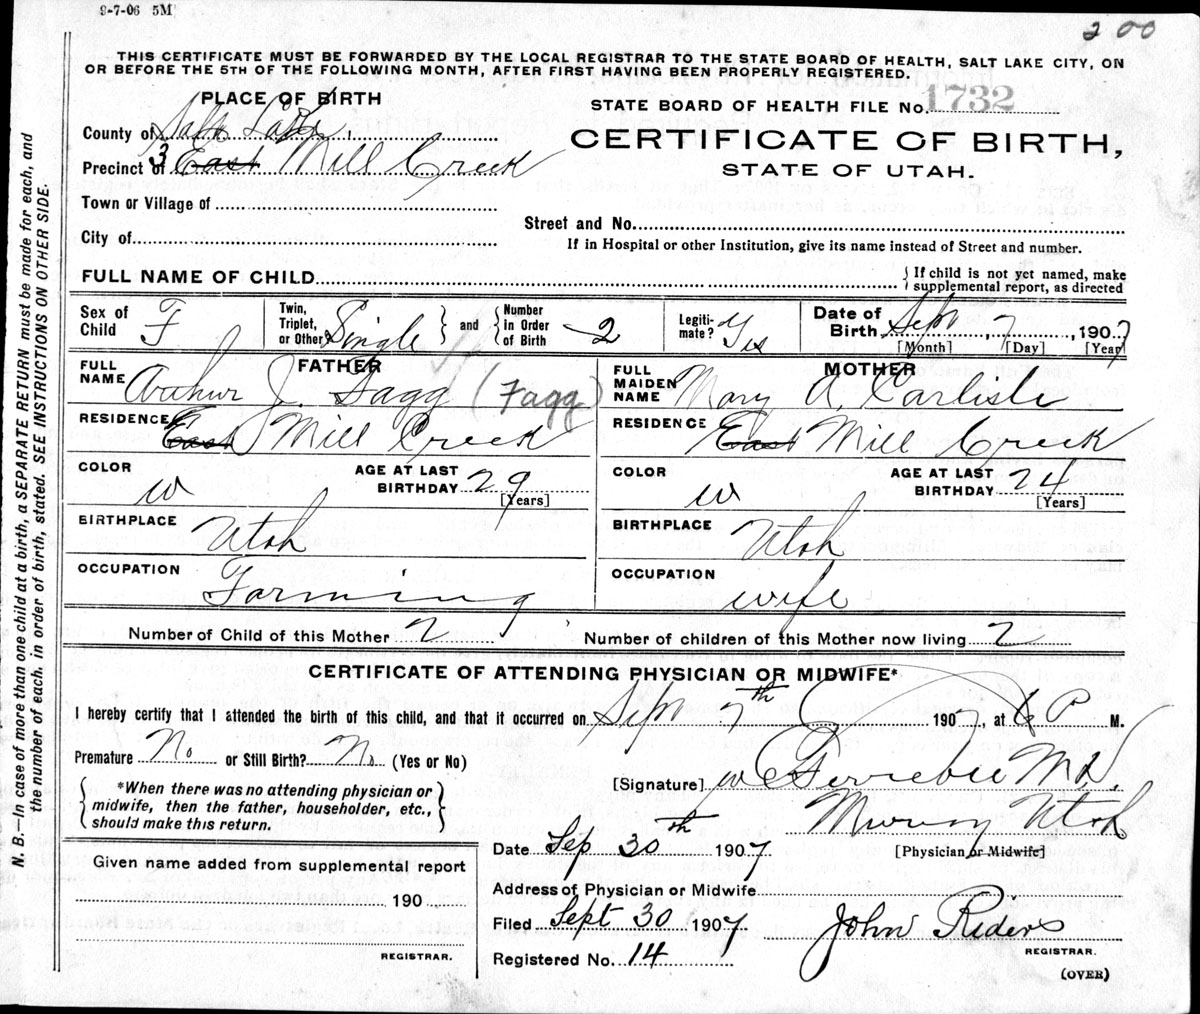 9-7-06 5M
2 00
THIS CERTIFICATE MUST BE FORWARDED BY THE LOCAL REGISTRAR TO THE STATE BOARD OF HEALTH, SALT LAKE CITY, ON
OR BEFORE THE 5TH OF THE FOLLOWING MONTH, AFTER FIRST HAVING BEEN PROPERLY REGISTERED.
PLACE OF BIRTH
STATE BOARD OF HEALTH FILE No. 1732
County of Salt Lake
CERTIFICATE OF BIRTH,
Precinct of 3 East Mill Creek
STATE OF UTAH.
Town or Village of
Street and No.
City of
If in Hospital or other Institution, give its name instead of Street and number.
FULL NAME OF CHILD
{ If child is not yet named, make supplemental report, as directed
Sex of Child F
Twin, Triplet, or Other Single } and { Number in Order of Birth 2
Legitimate? Yes
Date of Birth Sept 7, 1907
[Month] [Day] [Year]
FATHER
FULL NAME Arthur J. Fagg (Fagg)
MOTHER
FULL MAIDEN NAME Mary A. Carlisle
RESIDENCE East Mill Creek
RESIDENCE East Mill Creek
COLOR w
AGE AT LAST BIRTHDAY 29 [Years]
COLOR w
AGE AT LAST BIRTHDAY 24 [Years]
BIRTHPLACE Utah
BIRTHPLACE Utah
OCCUPATION Farming
OCCUPATION wife
Number of Child of this Mother 2
Number of children of this Mother now living 2
CERTIFICATE OF ATTENDING PHYSICIAN OR MIDWIFE*
I hereby certify that I attended the birth of this child, and that it occurred on Sept 7th 1907, at 6 P M.
Premature No or Still Birth? No (Yes or No)
[Signature] M.D.
{ *When there was no attending physician or midwife, then the father, householder, etc., should make this return. }
Murray Utah
Date Sep 30th 1907
[Physician or Midwife]
Given name added from supplemental report
190
REGISTRAR.
Address of Physician or Midwife
Filed Sept 30 1907
John Riders
REGISTRAR.
Registered No. 14
(OVER)
N. B.—In case of more than one child at a birth, a SEPARATE RETURN must be made for each, and
the number of each, in order of birth, stated. SEE INSTRUCTIONS ON OTHER SIDE.